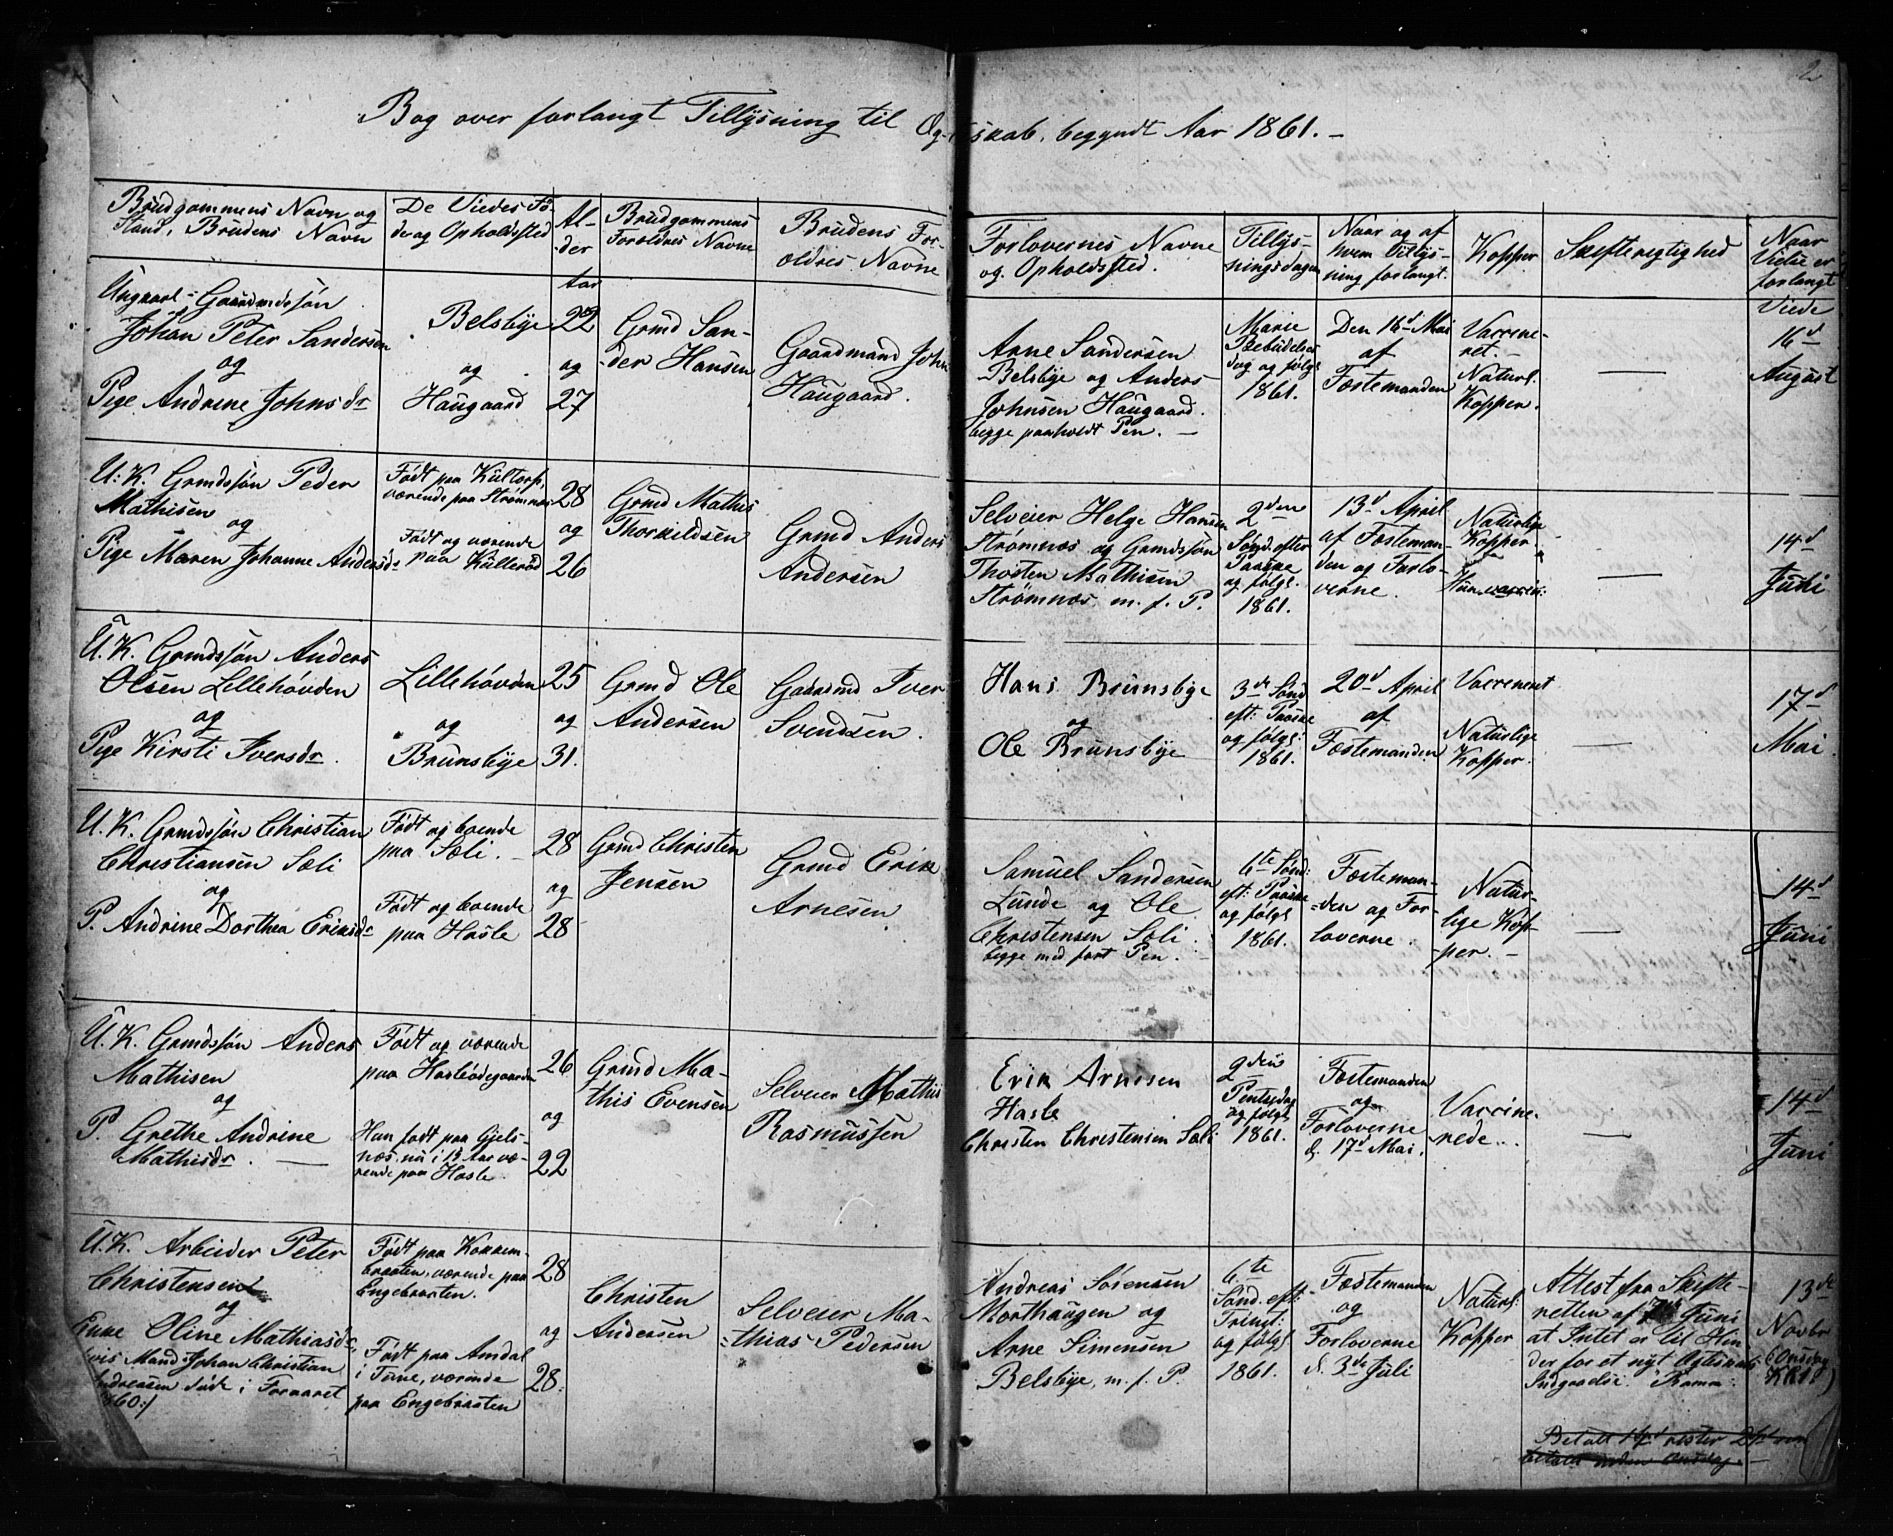 2
Bog over forlangt Tillysning til Ægteskab, begyndt Aar 1861. –
Brudgommens Navn og
Stand, Brudens Navn
De Viedes Fø-
de og Opholdsted
Al-
der
Brudgommens
Forældres Navne
Brudens For-
ældres Navne
Forlovernes Navne
og Opholdssted.
Tillys-
ningsdagen
Naar og af
hvem Tillys-
ning forlangt.
Kopper
Skifterigtighed
Naar
Vielse er
forlangt
Ungkarl Gaardmdssøn
Johan Peter Sandersen
og
Pige Andrine Johnsdr
Belsbye
og
Haugaard
Aar
22
og
27
Grmd San-
der Hansen
Gaardmand John
Haugaard.
Arne Sandersen
Belsbye og Anders
Johnsen Haugaard.
begge paaholdt Pen. –
Marie
Bebudelses
dag og følge
1861.
Den 16d Mai
af
Fæstemanden
Vaccine-
ret. –
Naturl.
Kopper.
Viede
16d
August
U. K. Grmdssøn Peder
Mathisen
og
Pige Maren Johanne Andersdr
Født paa Kultorp,
værende paa Strømnæs
Født og værende
paa Kullerød
28
og
26
Grmd Mathis
Thorkildsen
Grmd Anders
Andersen
Selveier Helge Hansen
Strømnæs og Grmdssøn
Thosten Mathisen
Strømnæs m. f. P.
2den
Sønd. efter
Paaske
og følge.
1861.
13d April
af Fæsteman-
den og Forlo-
verne.
Naturlige
Kopper
Hun vaccin:
14d
Juni
U. K. Grmdssøn Anders
Olsen Lillehovden
og
Pige Kirsti Iversdr.
Lillehovden
og
Brunsbye
25
og
31.
Grmd Ole
Andersen
Gaarmd Iver
Svendsen.
Hans Brunsbye
og
Ole Brunsbye
3de Sønd
eft: Paaske
og følge
1861.
20d April
af
Fæstemanden
Vaccineret
Naturlige
Kopper.
17d
Mai.
U. K. Grmdssøn Christian
Christiansen Soli
og
P. Andrine Dorthea Eriksdr
Født og boende
paa Soli. –
Født og boende
paa Hasle
28
og
28
Grmd Christen
Jensen
Grmd Erik
Arnesen
Samuel Sandersen
Lunde og Ole
Christensen Soli.
begge med ført Pen. –
6te Sønd:
eft: Paaske
og følge
1861.
Fæsteman-
den og For-
loverne.
Natur-
lige Kop-
per. –
14d
Juni
U. K. Grmdssøn Anders
Mathisen
og
P. Grethe Andrine
Mathisdr.
Født og værende
paa Hasleødegaarden
Hun født paa Gjels-
næs, nu i 13 Aar væ-
rende paa Hasle.
26
og
22
Grmd Ma-
this Evensen
Selveier Mathis
Rasmussen
Erik Arnesen
Hasle
Christen Christensen Soli
2den
Pentsedag
og følge
1861.
Fæstemanden
og
Forloverne
d. 17d Mai.
Vaccine-
rede.
14d
Juni
U. K. Arbeider Peter
Christensen
og
Enke Oline Mathiasdr,
Mand Johan Christian
Andreassen døde i Foraaret
1860:/
Født paa Kokkem-
braaten, værende paa
Engebraaten.
Født paa Amdal
i Tune, værende
paa Engebraaten
28
og
28.
Christen
Andersen
Selveier Ma-
thias Pedersen
Andreas Sørensen
Morthaugen og
Arne Simensen
Belsbye, m. f. P.
6te
Sønd. eft.
Trinit:
og følge
1861.
Fæstemanden
og
Forloverne
d. 3de Juli
Naturl:
Kopper
Attest fra Skifte-
retten af Juni
at Intet er til Hin-
der for et nyt Ægteskabs
Indgaaelse.
13de
Novbr
(Onsdag
Kl 10)
Betalt rester
betalt inden Onsdag –